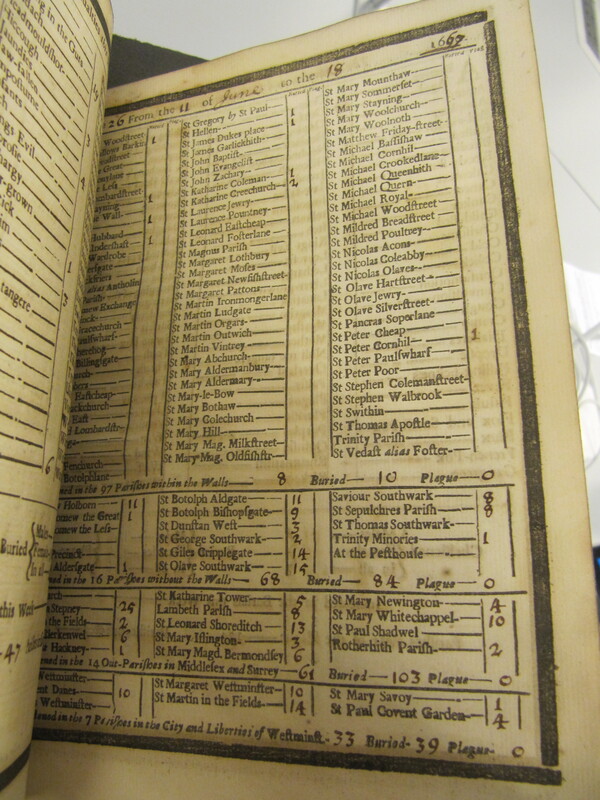 26 From the 11 of June to the 18 1667
Woodstreet
Barkin 1
1
1
1
Hubband
Wardrobe
alias Antholin
new Exchange
Billingsgate
Eastcheap
East
Lombardstr
Fenchurch
Botolphlane
St Gregory by St Paul 1
St Hellen 1
St James Dukes place
St James Garlickhith
St John Baptist
St John Evangelist
St John Zachary 1
St Katharine Coleman 2
St Katharine Creechurch
St Laurence Jewry
St Laurence Pountney
St Leonard Eastcheap
St Leonard Fosterlane
St Magnus Parish
St Margaret Lothbury
St Margaret Moses
St Margaret Newfishstreet
St Margaret Pattons
St Martin Ironmongerlane
St Martin Ludgate
St Martin Orgars
St Martin Outwich
St Martin Vintrey
St Mary Abchurch
St Mary Aldermanbury
St Mary Aldermary
St Mary-le-Bow
St Mary Bothaw
St Mary Colechurch
St Mary Hill
St Mary Mag. Milkstreet
St Mary Mag. Oldfishstr
St Mary Mounthaw
St Mary Sommerset
St Mary Stayning
St Mary Woolchurch
St Mary Woolnoth
St Matthew Friday-street
St Michael Bassishaw
St Michael Cornhil
St Michael Crookedlane
St Michael Queenhith
St Michael Quern
St Michael Royal
St Michael Woodstreet
St Mildred Breadstreet
St Mildred Poultney
St Nicolas Acons
St Nicolas Coleabby
St Nicolas Olaves
St Olave Hartstreet
St Olave Jewry
St Olave Silverstreet
St Pancras Soperlane
St Peter Cheap 1
St Peter Cornhil
St Peter Paulswharf
St Peter Poor
St Stephen Colemanstreet
St Stephen Walbrook
St Swithin
St Thomas Apostle
Trinity Parish
St Vedast alias Foster
in the 97 Parishes within the Walls 8 Buried 10 Plague 0
Holborn 11
the Great 1
the Less
Precinct
Aldersgate 1
St Botolph Aldgate 11
St Botolph Bishopsgate 9
St Dunstan West 3
St George Southwark 2
St Giles Cripplegate 14
St Olave Southwark 15
Saviour Southwark 8
St Sepulchres Parish 8
St Thomas Southwark
Trinity Minories 1
At the Pesthouse
in the 16 Parishes without the Walls 68 Buried 84 Plague 0
Stepney 25
the Fields 2
6
Hackney 1
St Katharine Tower 5
Lambeth Parish 8
St Leonard Shoreditch 13
St Mary Islington 3
St Mary Magd. Bermondsey 6
St Mary Newington 4
St Mary Whitechappel 10
St Paul Shadwel
Rotherhith Parish 2
in the 14 Out-Parishes in Middlesex and Surrey 61 Buried 103 Plague 0
Westminster
Danes 10
Westminster
St Margaret Westminster 10
St Martin in the Fields 14
St Mary Savoy 1
St Paul Covent Garden 4
in the 7 Parishes in the City and Liberties of Westminst. 33 Buried 39 Plague 0